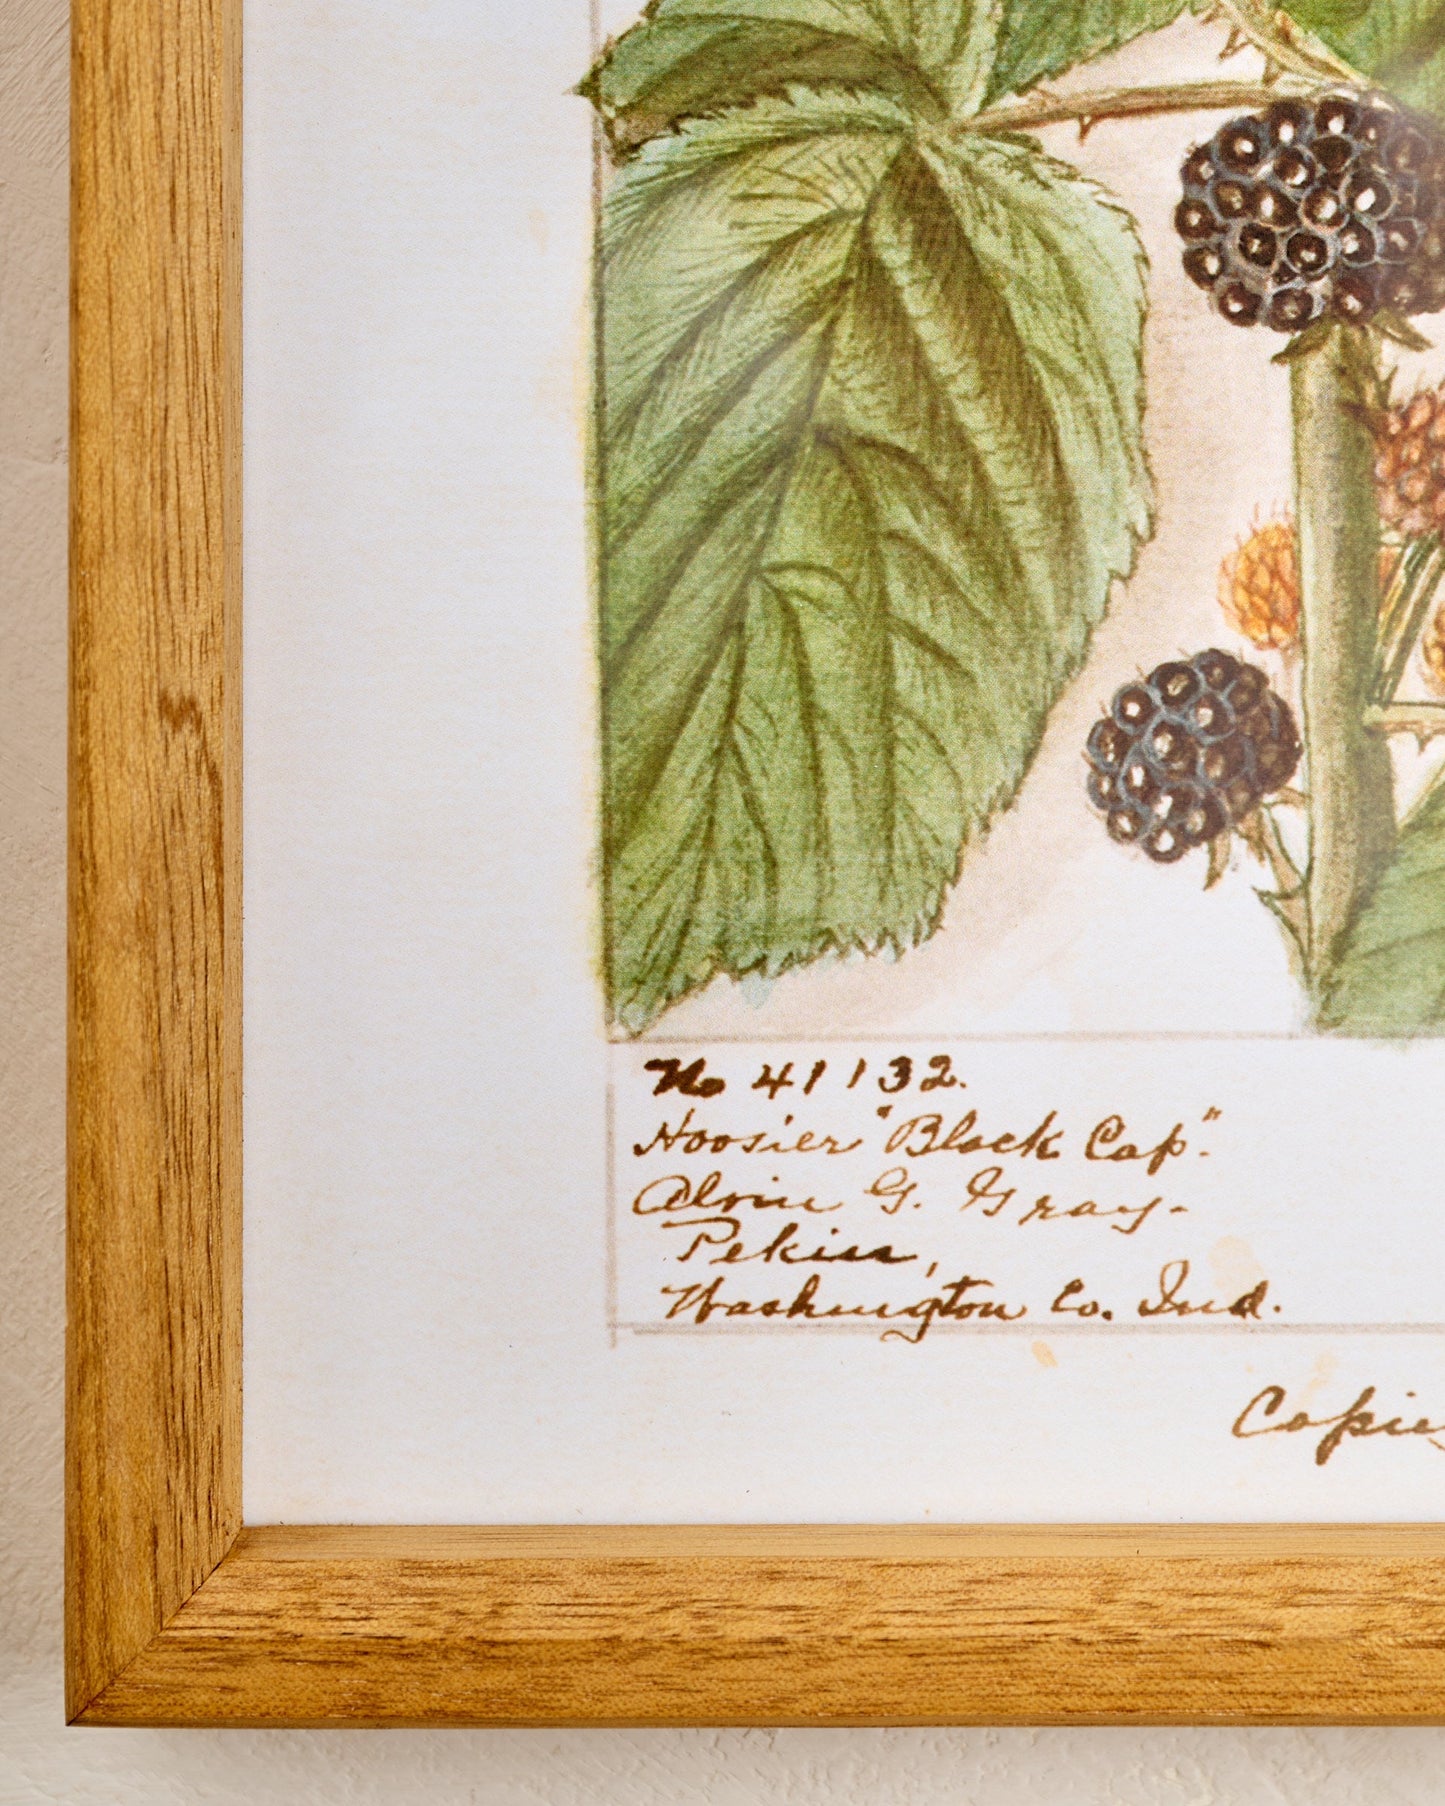 No 41132.
Hoosier "Black Cap".
Alvin G. Gray-
Pekin,
Washington Co. Ind.